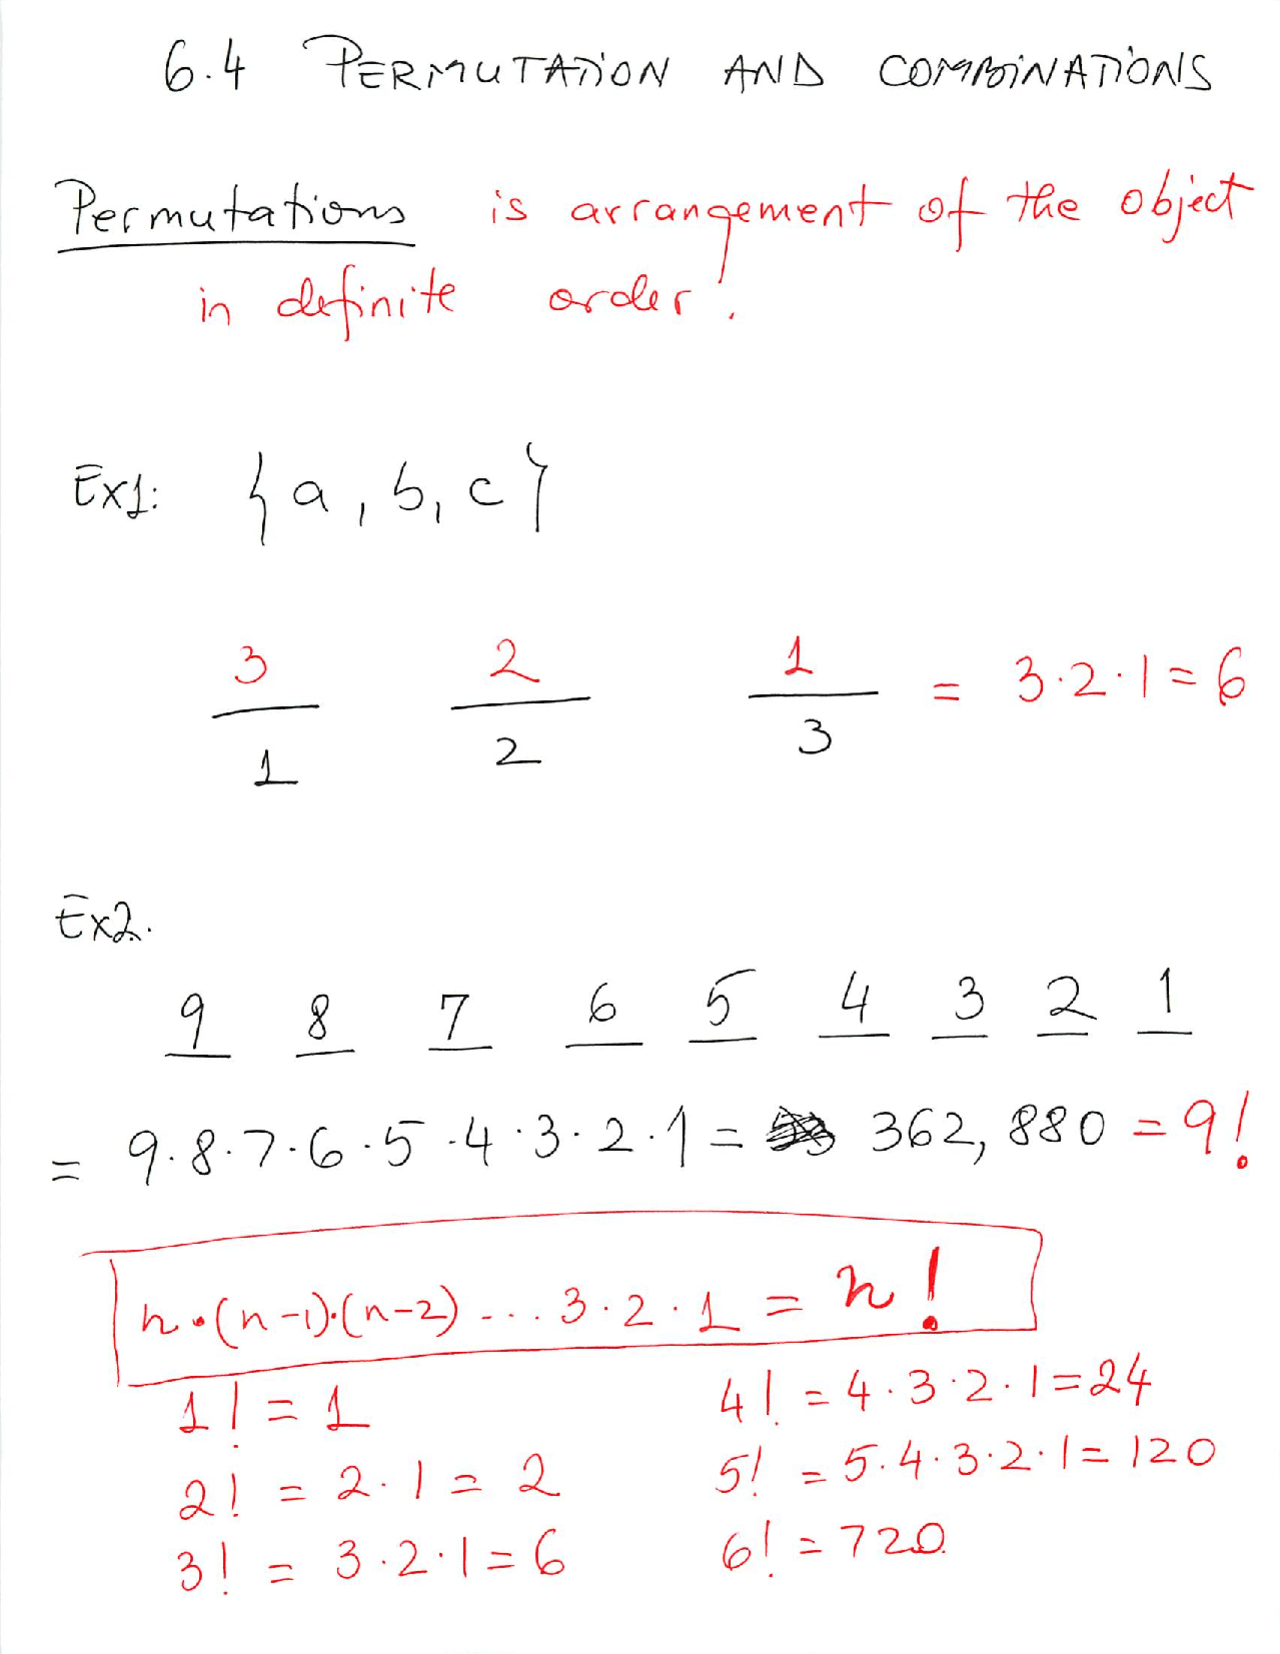 6.4 PERMUTATION AND COMBINATIONS
Permutations is arrangement of the object
in definite order.
Ex1: {a, b, c}
3 2 1 = 3·2·1=6
1 2 3
Ex2.
9 8 7 6 5 4 3 2 1
= 9·8·7·6·5·4·3·2·1= 362,880 =9!
n·(n-1)·(n-2) ... 3·2·1 = n!
1! = 1 4! = 4·3·2·1=24
2! = 2·1 = 2 5! = 5·4·3·2·1=120
3! = 3·2·1=6 6! =720